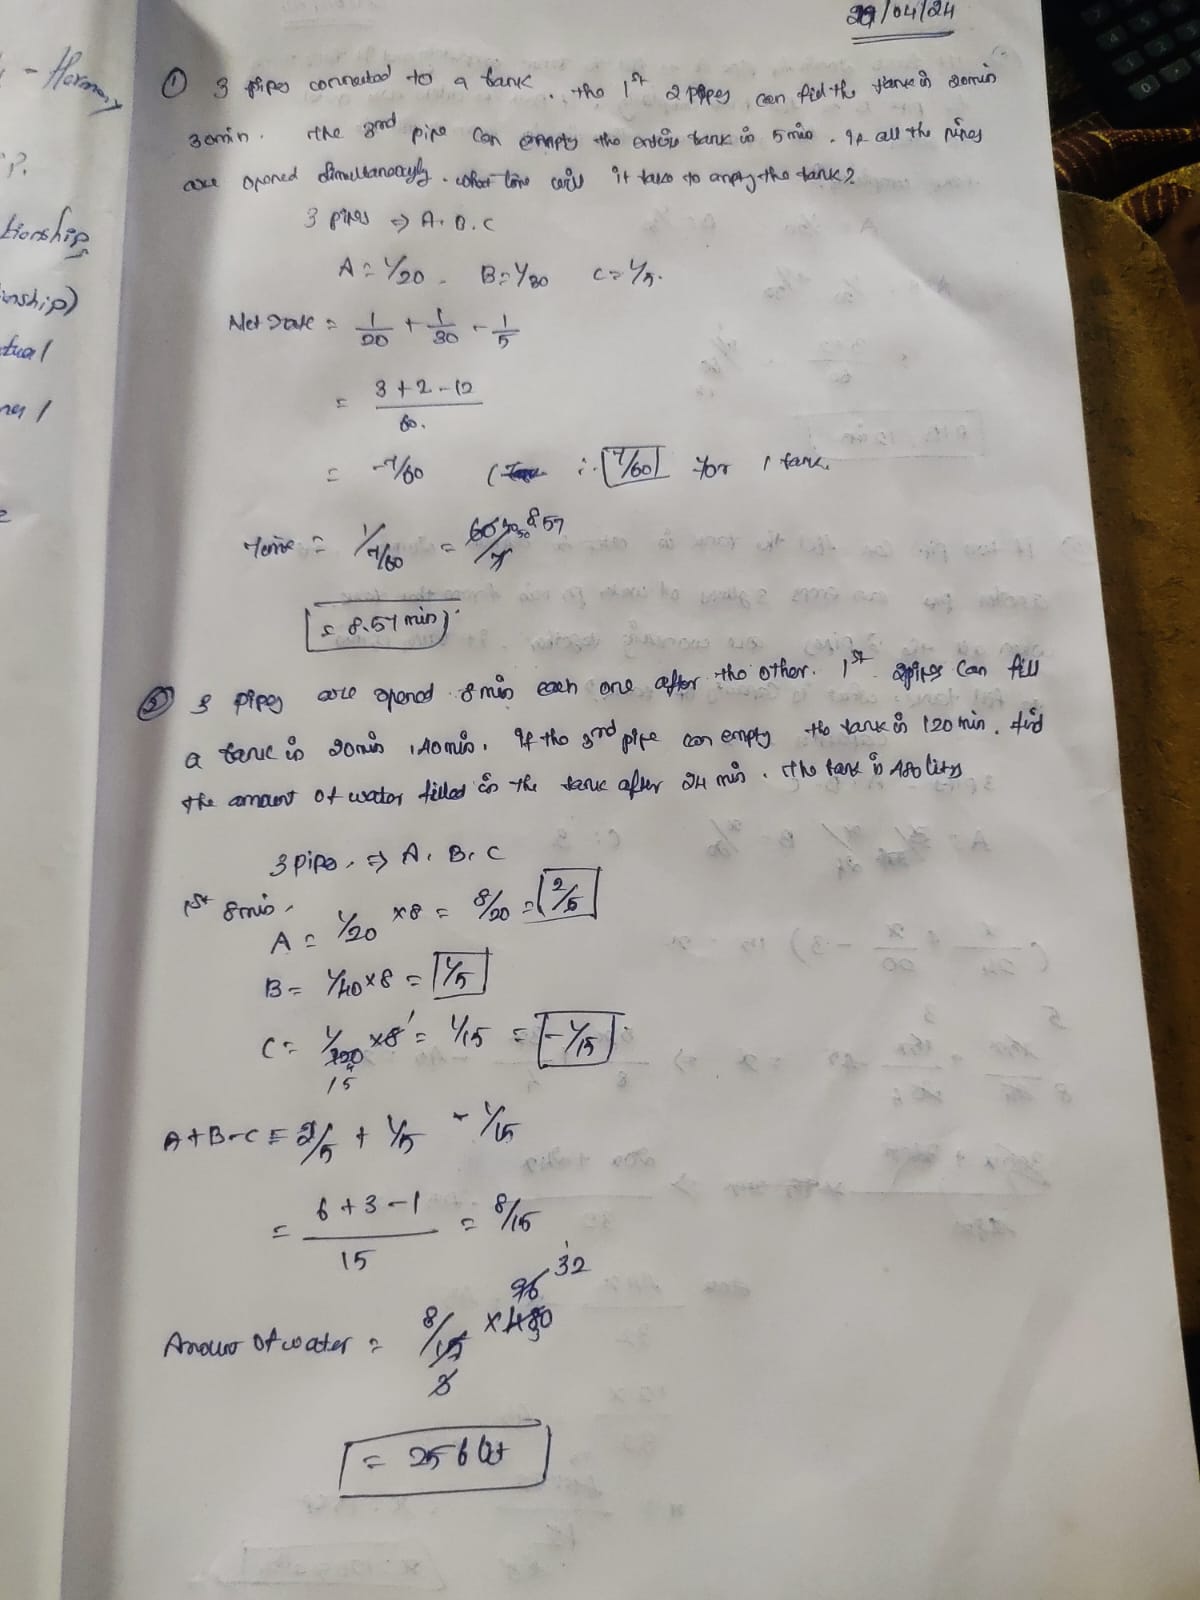 29/04/24
- Harmony
P.
tionship
onship)
tual
① 3 pipes connected to a tank. the 1st 2 pipes can fill the tank in 20min
30min. The 3rd pipe can empty the entire tank in 5 min. If all the pipes
are opened simultaneously. what time will it take to empty the tank?
3 pipes ⇒ A, B, C
A = 1/20, B = 1/30 C = 1/5.
Net rate = 1/20 + 1/30 - 1/5
= 3 + 2 - 12 / 60.
= -7/60 ∴ 7/60 for 1 tank.
Time = 1/7/60 = 60/7 8.57
= 8.57 min
② 3 pipes are opened 8 min each one after the other. 1st 2pipes can fill
a tank in 20min, 40min. If the 3rd pipe can empty the tank in 120 min. find
the amount of water filled in the tank after 24 min. The tank is 480 lits
3 pipe ⇒ A, B, C
1st 8min,
A = 1/20 × 8 = 8/20 = 2/5
B = 1/40 × 8 = 1/5
C = 1/120 × 8 = 1/15 = -1/15
15
A+B-C = 2/5 + 1/5 - 1/15
= 6 + 3 - 1 / 15 = 8/15
96 32
Amount of water = 8/15 × 480
3
= 256 lit